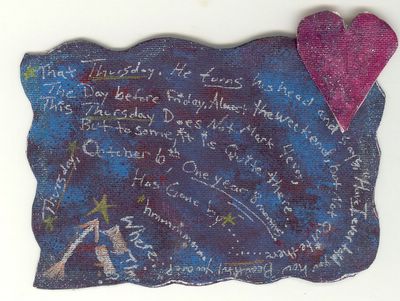 That Thursday. He turns his head and says, "Have I
The Day before Friday, Almost the weekend, but not quite there
This Thursday Does Not Mark Here,
But to some it is Quite there...
Thursday, October 6th
One year
Has Gone by...
hmmmmmm
how Beautiful you are?
Where